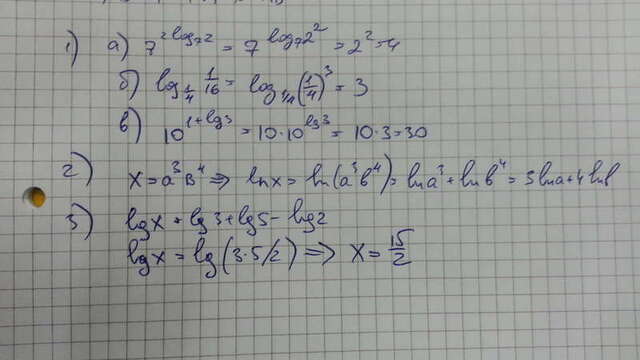 1) а) 7^(2log₇2) = 7^(log₇2²) = 2² = 4
б) log_(1/4) 1/16 = log_(1/4) (1/4)³ = 3
в) 10^(1+lg3) = 10·10^(lg3) = 10·3=30
2) x=a³b⁴ ⇒ lnx = ln(a³b⁴) = lna³+lnb⁴ = 3lna+4lnb
3) lgx = lg3+lg5-lg2
lgx = lg(3·5/2) ⇒ x = 15/2